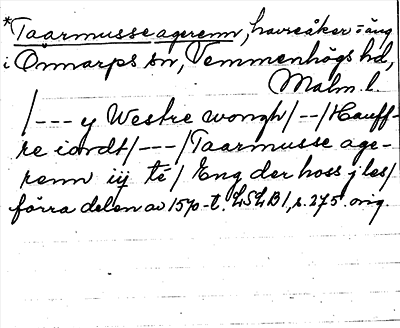 *Taarmusse agerenn, havreåker o äng
i Önnarps sn, Vemmenhögs hd,
Malm. l.
/--- y Westre wongh/--/Hauff-
re iordt/---/Taarmusse age-
renn iij té/Eng der hoss j les/
förra delen av 1570-t. LSLB1, s. 275 orig.